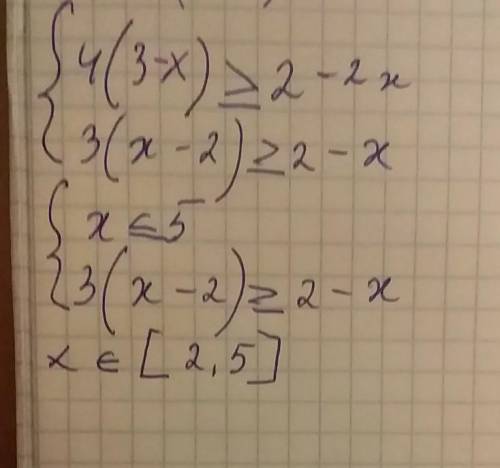 4(3-x) ≥ 2 - 2x
3(x - 2) ≥ 2 - x
x ≤ 5
3(x - 2) ≥ 2 - x
x ∈ [2, 5]